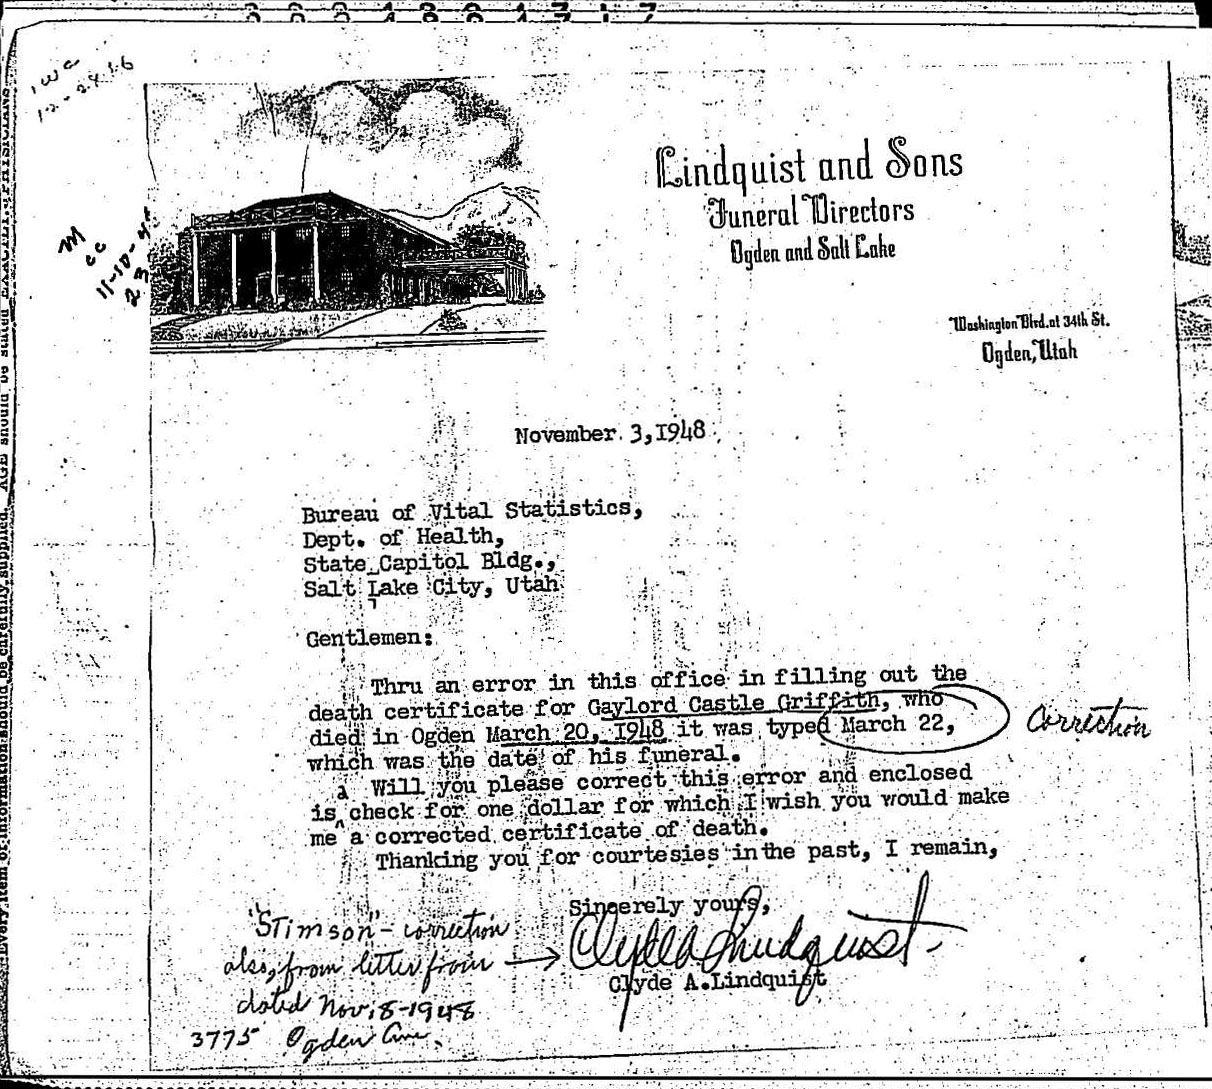 Lindquist and Sons
Funeral Directors
Ogden and Salt Lake
Washington Blvd. at 34th St.
Ogden, Utah
M
cc
November 3, 1948
Bureau of Vital Statistics,
Dept. of Health,
State Capitol Bldg.,
Salt Lake City, Utah
Gentlemen:
Thru an error in this office in filling out the
death certificate for Gaylord Castle Griffith, who
died in Ogden March 20, 1948 it was typed March 22,
Correction
which was the date of his funeral.
Will you please correct this error and enclosed
is a check for one dollar for which I wish you would make
me a corrected certificate of death.
Thanking you for courtesies in the past, I remain,
Sincerely yours,
Clyde A Lindquist
Clyde A. Lindquist
"Stimson" - correction
also, from letter from
dated Nov. 8-1948
3775 Ogden Ave.
Every item of information should be carefully supplied. AGE should be stated EXACTLY. PHYSICIANS